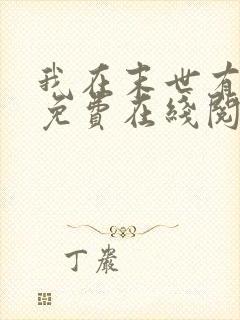 我在末世有
免費在綫閱
丁巖